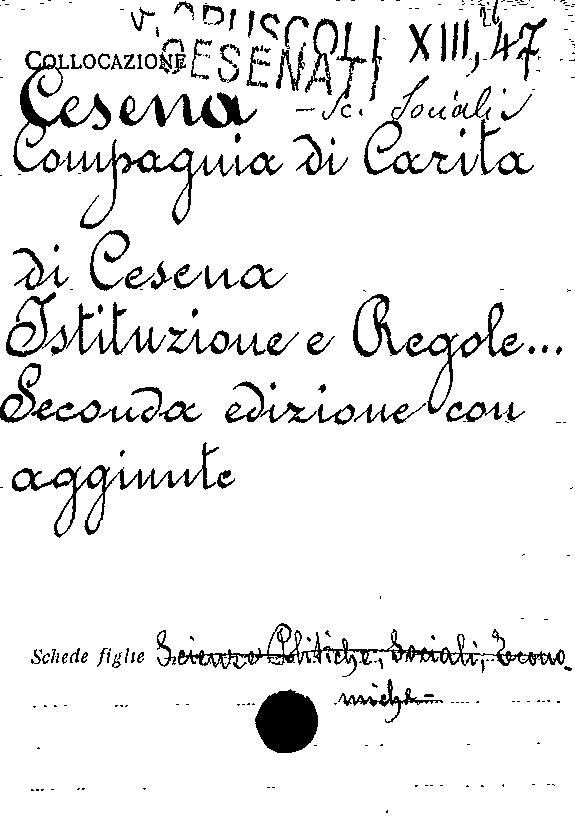 V. OPUSCOLI
COLLOCAZIONE CESENATI XIII, 47
Cesena - Sc. Sociali
Compagnia di Carita
di Cesena
Istituzione e Regole...
Seconda edizione con
aggiunte
Schede figlie Scienze Politiche, Sociali, Econo-
miche=